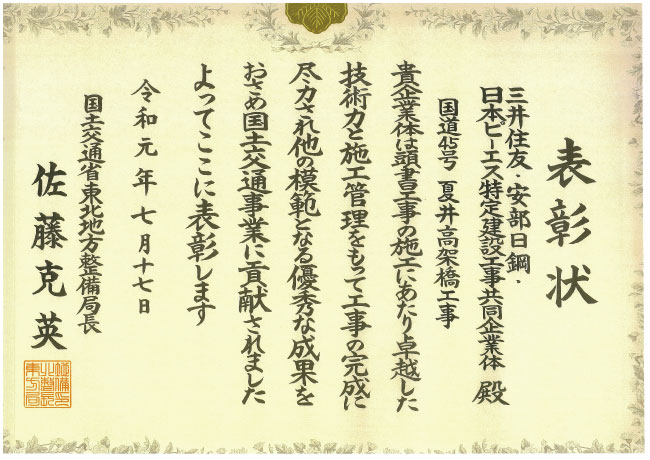 表彰状
三井住友・安部日鋼・
日本ピーエス特定建設工事共同企業体 殿
国道45号 夏井高架橋工事
貴企業体は頭書工事の施工にあたり卓越した
技術力と施工管理をもって工事の完成に
尽力され他の模範となる優秀な成果を
おさめ国土交通事業に貢献されました
よってここに表彰します
令和元年七月十七日
国土交通省東北地方整備局長
佐藤克英